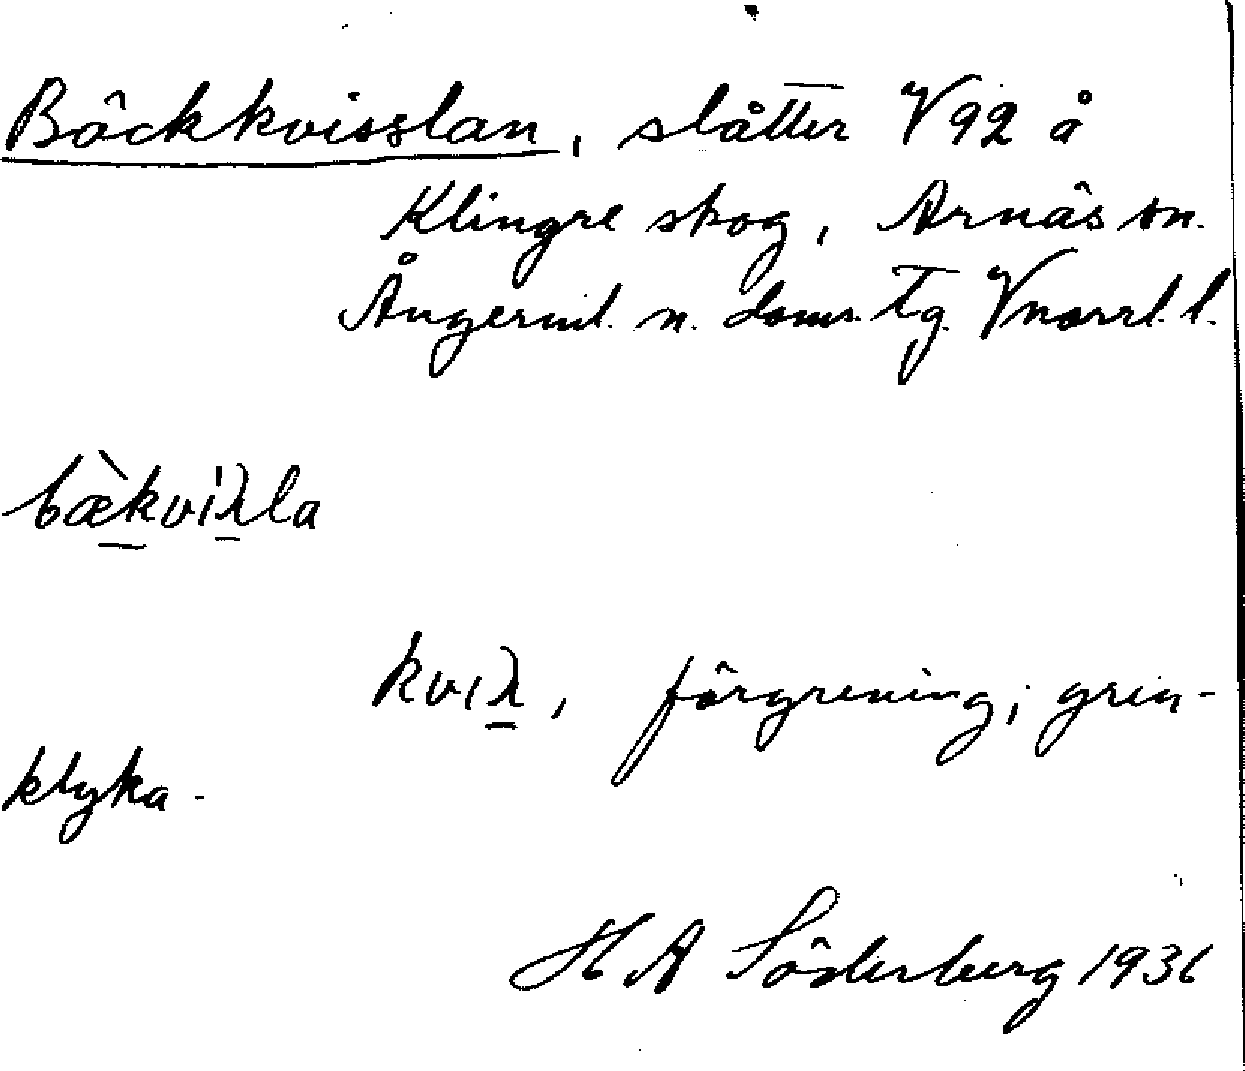 Bäckkvisslan, slåtter V 92 å
Klingre skog, Arnäs sn.
Ångerml. n. doms. tg. Vnorrl. l.
bæ̀kviλla
kviλ, förgrening, gren-
klyka.
H A Söderberg 1931